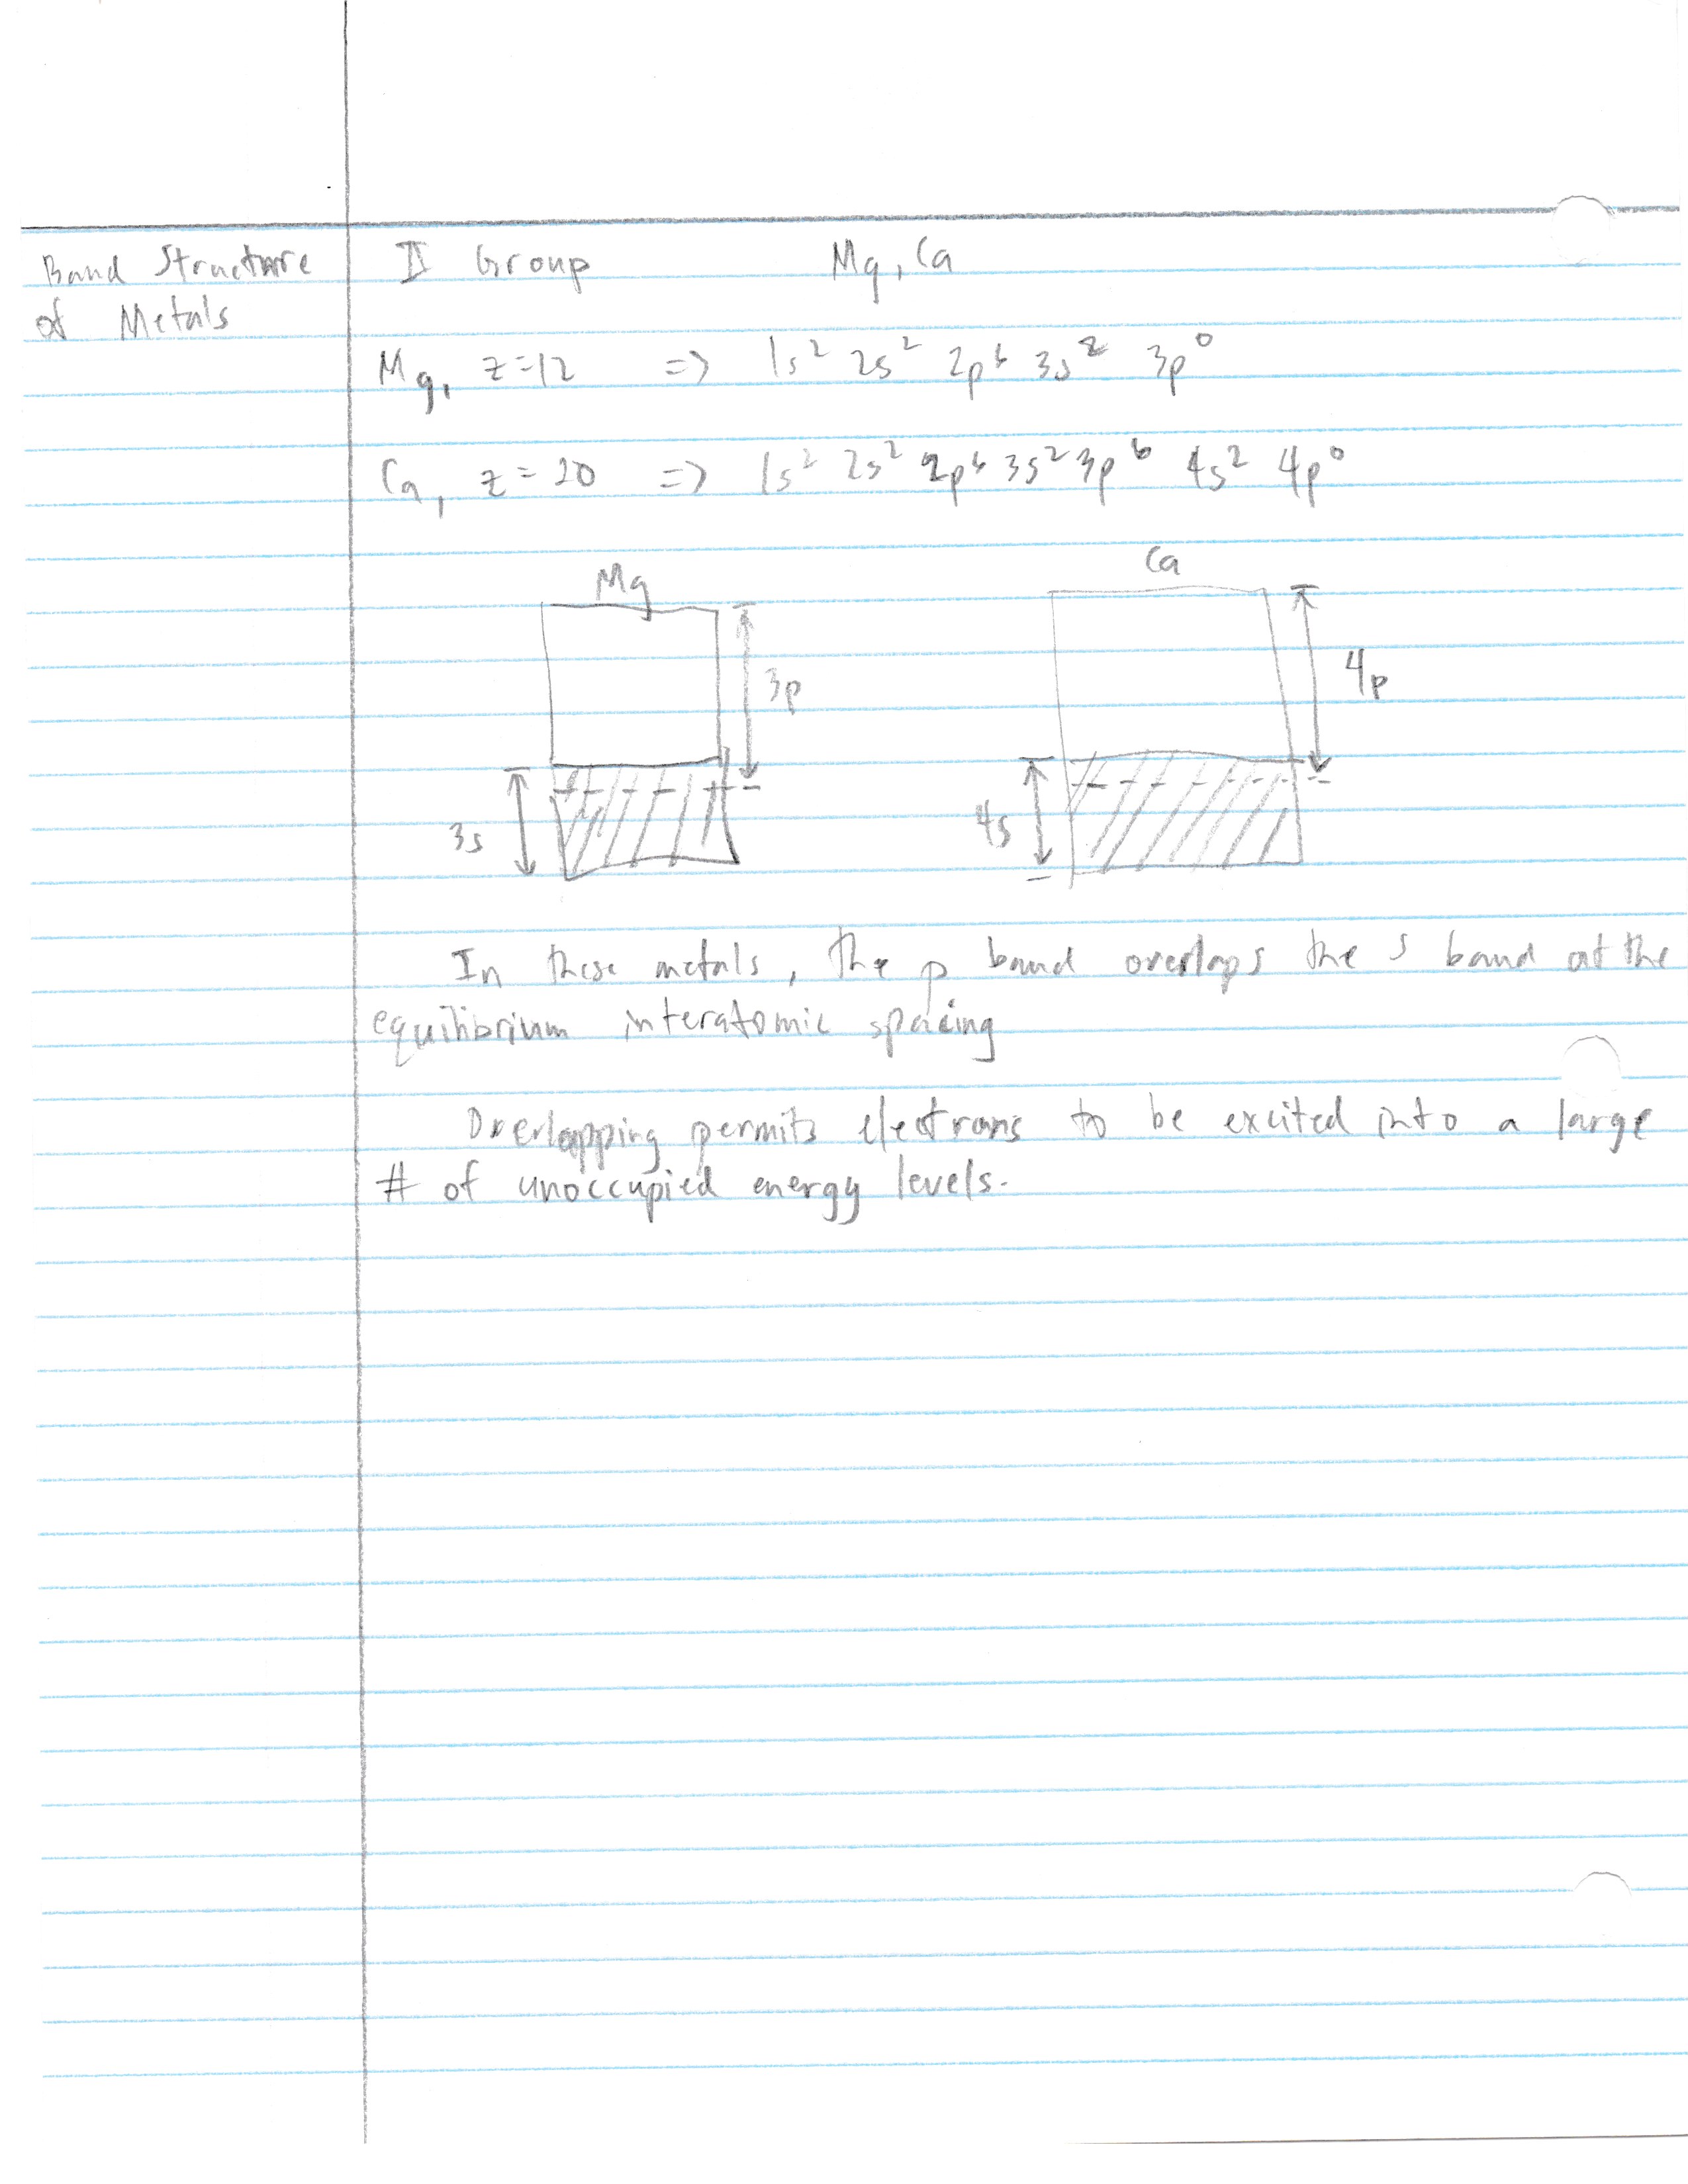 Band Structure
of Metals
II Group Mg, Ca
Mg, z=12 => 1s² 2s² 2p⁶ 3s² 3p⁰
Ca, z=20 => 1s² 2s² 2p⁶ 3s² 3p⁶ 4s² 4p⁰
Mg
Ca
3p
4p
3s
4s
In these metals, the p band overlaps the s band at the
equilibrium interatomic spacing
Overlapping permits electrons to be excited into a large
# of unoccupied energy levels.